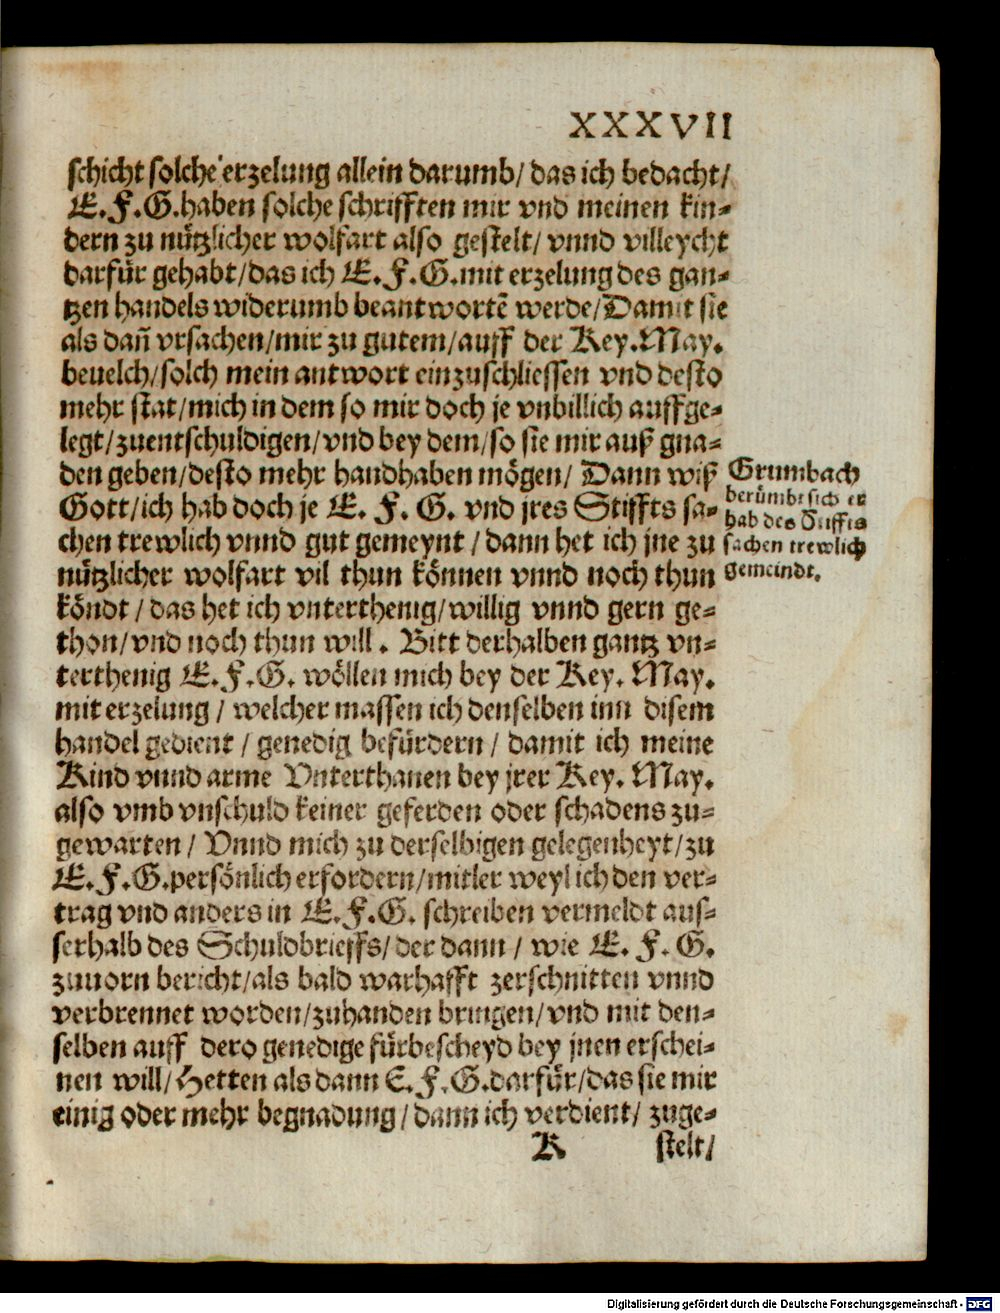 XXXVII
schicht solche erzelung allein darumb/ das ich bedacht/
E.F.G. haben solche schrifften mir vnd meinen kin⸗
dern zu nützlicher wolfart also gestelt/ vnnd villeycht
darfür gehabt/ das ich E.F.G. mit erzelung des gan⸗
tzen handels widerumb beantwortē werde/ Damit sie
als dañ vrsachen/ mir zu gutem/ auff der Key. May.
beuelch/ solch mein antwort einzuschliessen vnd desto
mehr stat/ mich in dem so mir doch je vnbillich auffge⸗
legt/ zuentschuldigen/ vnd bey dem/ so sie mir auß gna⸗
den geben/ desto mehr handhaben mögen/ Dann wiß
Gott/ ich hab doch je E. F. G. vnd jres Stiffts sa⸗
chen trewlich vnnd gut gemeynt / dann het ich jne zu
nützlicher wolfart vil thun können vnnd noch thun
köndt / das het ich vnterthenig/ willig vnnd gern ge⸗
thon/ vnd noch thun will. Bitt derhalben gantz vn⸗
terthenig E.F.G. wöllen mich bey der Key. May.
mit erzelung / welcher massen ich denselben inn disem
handel gedient / genedig befürdern / damit ich meine
Kind vnnd arme Vnterthanen bey jrer Key. May.
also vmb vnschuld keiner geferden oder schadens zu⸗
gewarten / Vnnd mich zu derselbigen gelegenheyt/ zu
E.F.G. persönlich erfordern/ mitler weyl ich den ver⸗
trag vnd anders in E.F.G. schreiben vermeldt aus⸗
serhalb des Schuldbrieffs/ der dann / wie E. F. G.
zuuorn bericht/ als bald warhafft zerschnitten vnnd
verbrennet worden/ zuhanden bringen/ vnd mit den⸗
selben auff dero genedige fürbescheyd bey jnen erschei⸗
nen will/ Hetten als dann E.F.G. darfür/ das sie mir
einig oder mehr begnadung/ dann ich verdient/ zuge⸗
K stelt/
Grumbach
berümbt sich er
hab des Stiffts
sachen trewlich
gemeindt.
Digitalisierung gefördert durch die Deutsche Forschungsgemeinschaft - DFG